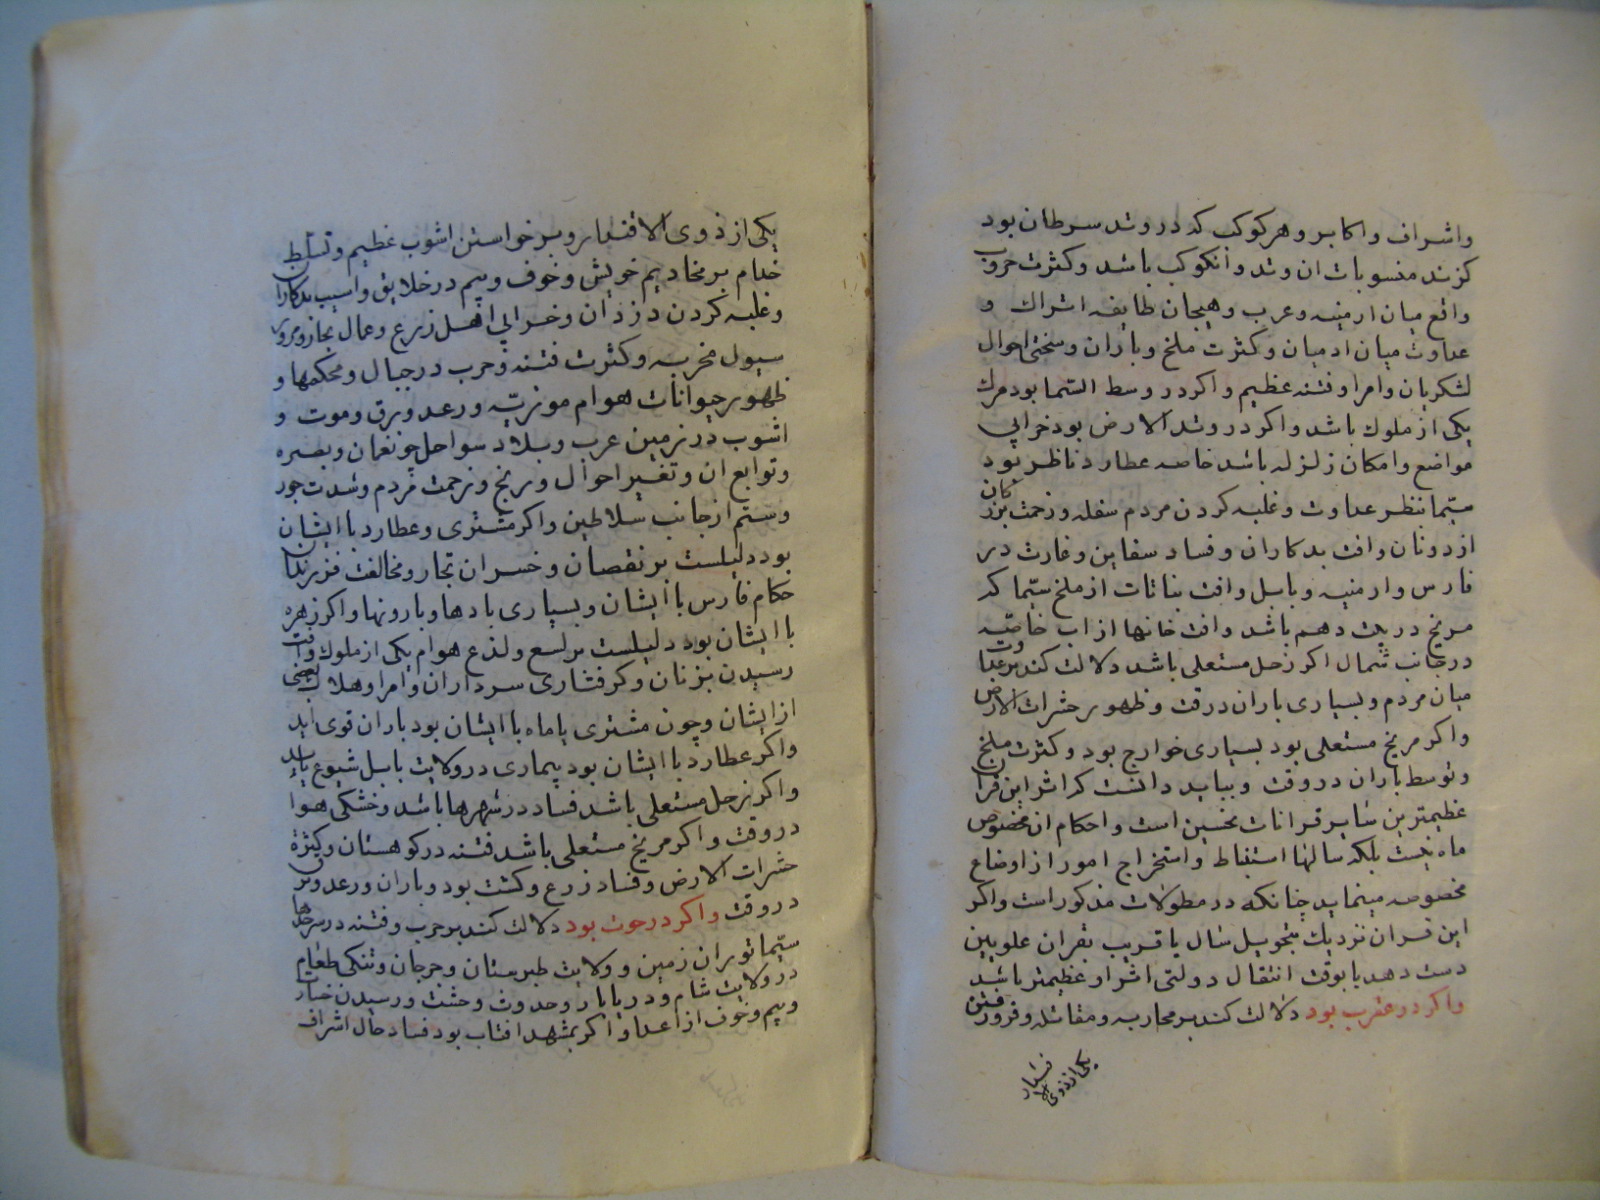 واشراف واکابر وهر کوکب که در وتد سرطان بود
کزند منسوبات ان وتد وانکوکب باشد وکثرت حروب
واقع میان ارمنیه وعرب وهیجان طایفه اتراک و
عداوت میان ادمیان وکثرت ملخ وباران وسختی احوال
لشکریان وامرا وفتنه عظیم واکر در وسط السّما بود مرک
یکی از ملوک باشد واکر در وتد الارض بود خرابی
مواضع وامکان زلزله باشد خاصه عطارد ناظر بود
سیّما بنظر عداوت وغلبه کردن مردم سفله وزحمت بزرکان
از دونان وافت بدکاران وفساد سفاین وغارت در
فارس وارمنیه وبابل وافت نباتات از ملخ سیّما که
مریخ در بیت دهم باشد وافت خانها از اب خاصّه
در جانب شمال اکر زحل مستعلی باشد دلالت کند بر عداوت
میان مردم وبسیاری باران در وقت وظهور حشرات الارض
واکر مریخ مستعلی بود بسیاری خوارج بود وکثرت ملخ
وتوسط باران در وقت وبباید دانست که اثر این قران
عظیمترین سایر قرانات نحسین است واحکام ان مخصوص
ماه نیست بلکه سالها استنباط واستخراج امور از اوضاع
مخصوصه مینماید چنانکه در مطولات مذکور است واکر
این قران نزدیک بتحویل سال یا قریب بقران علویین
دست دهد یا بوقت انتقال دولتی اثر او عظیمتر باشد
واکر در عقرب بود دلالت کند بر محاربه ومقاتله وفرو رفتن
یکی از ذوی الاقتدار
یکی از ذوی الاقتدار وبر خواستن اشوب عظیم وتسلّط
خدام بر مخادیم خویش وخوف وبیم در خلایق واسیب بدکاران
وغلبه کردن دزدان وخرابی اهل زرع وعمال بخار ومرور
سیول مخربه وکثرت فتنه وحرب در جبال ومحکمها و
ظهور حیوانات هوام موذیّه ورعد وبرق وموت و
اشوب در زمین عرب وبلاد سواحل چو نعمان وبصره
وتوابع ان وتغییر احوال ورنج وزحمت مردم وشدت جور
وستم از جانب سلاطین واکر مشتری وعطارد با ایشان
بود دلیلست بر نقصان وخسران تجار ومخالفت فرزندان
حکام فارس با ایشان وبسیاری بادها وبارونها واکر زهره
با ایشان بود دلیلست بر لسع ولذع هوام یکی از ملوک وافت
رسیدن بزنان وکرفتاری سرداران وامرا وهلاک بعضی
از ایشان وچون مشتری یا ماه با ایشان بود باران قوی اید
واکر عطارد با ایشان بود بیماری در ولایت بابل شیوع یابد
واکر زحل مستعلی باشد فساد در شهرها باشد وخشکی هوا
در وقت واکر مریخ مستعلی باشد فتنه در کوهستان وکثرة
حشرات الارض وفساد زرع وکشت بود وباران ورعد وبرق
در وقت واکر در حوت بود دلالت کند بر حرب وفتنه در سرحدها
سیّما توران زمین وولایت طبرستان وجرجان وتنکی طعام
در ولایت شام ودر یابار وحدوث وحشت ورسیدن خسار
وبیم وخوف از اعدا واکر بمشهد افتاب بود فساد حال اشراف